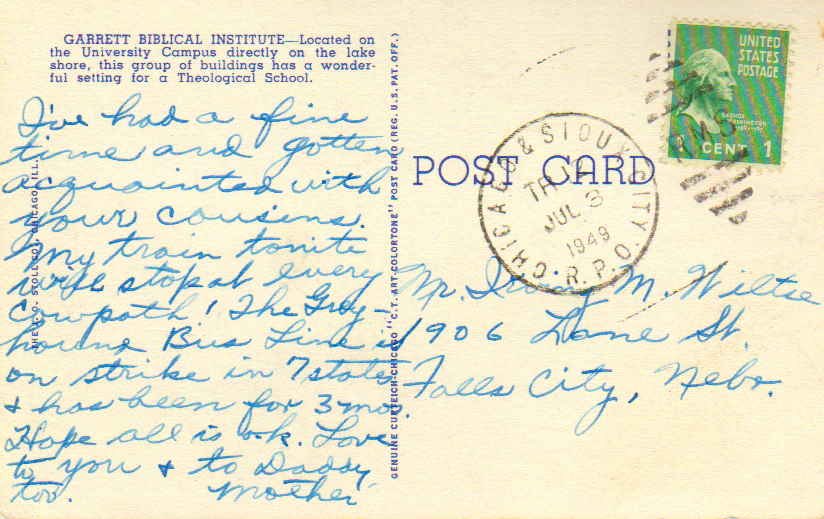 GARRETT BIBLICAL INSTITUTE—Located on
the University Campus directly on the lake
shore, this group of buildings has a wonder-
ful setting for a Theological School.
I've had a fine
time and gotten
acquainted with
your cousins.
My train tonite
will stop at every
cowpath! The Grey-
hound Bus Line is
on strike in 7 states
& has been for 3 mo.
Hope all is o.k. Love
to you & to Daddy
too. Mother
GENUINE CURTEICH-CHICAGO "C.T. ART-COLORTONE" POST CARD (REG. U.S. PAT. OFF.)
CO., CHICAGO, ILL.
POST CARD
CHICAGO & SIOUX CITY
JUL 3
1949
R.P.O.
RMS
UNITED
STATES
POSTAGE
CENT 1
Mr. Irving M. Wiltse
1906 Lane St.
Falls City, Nebr.